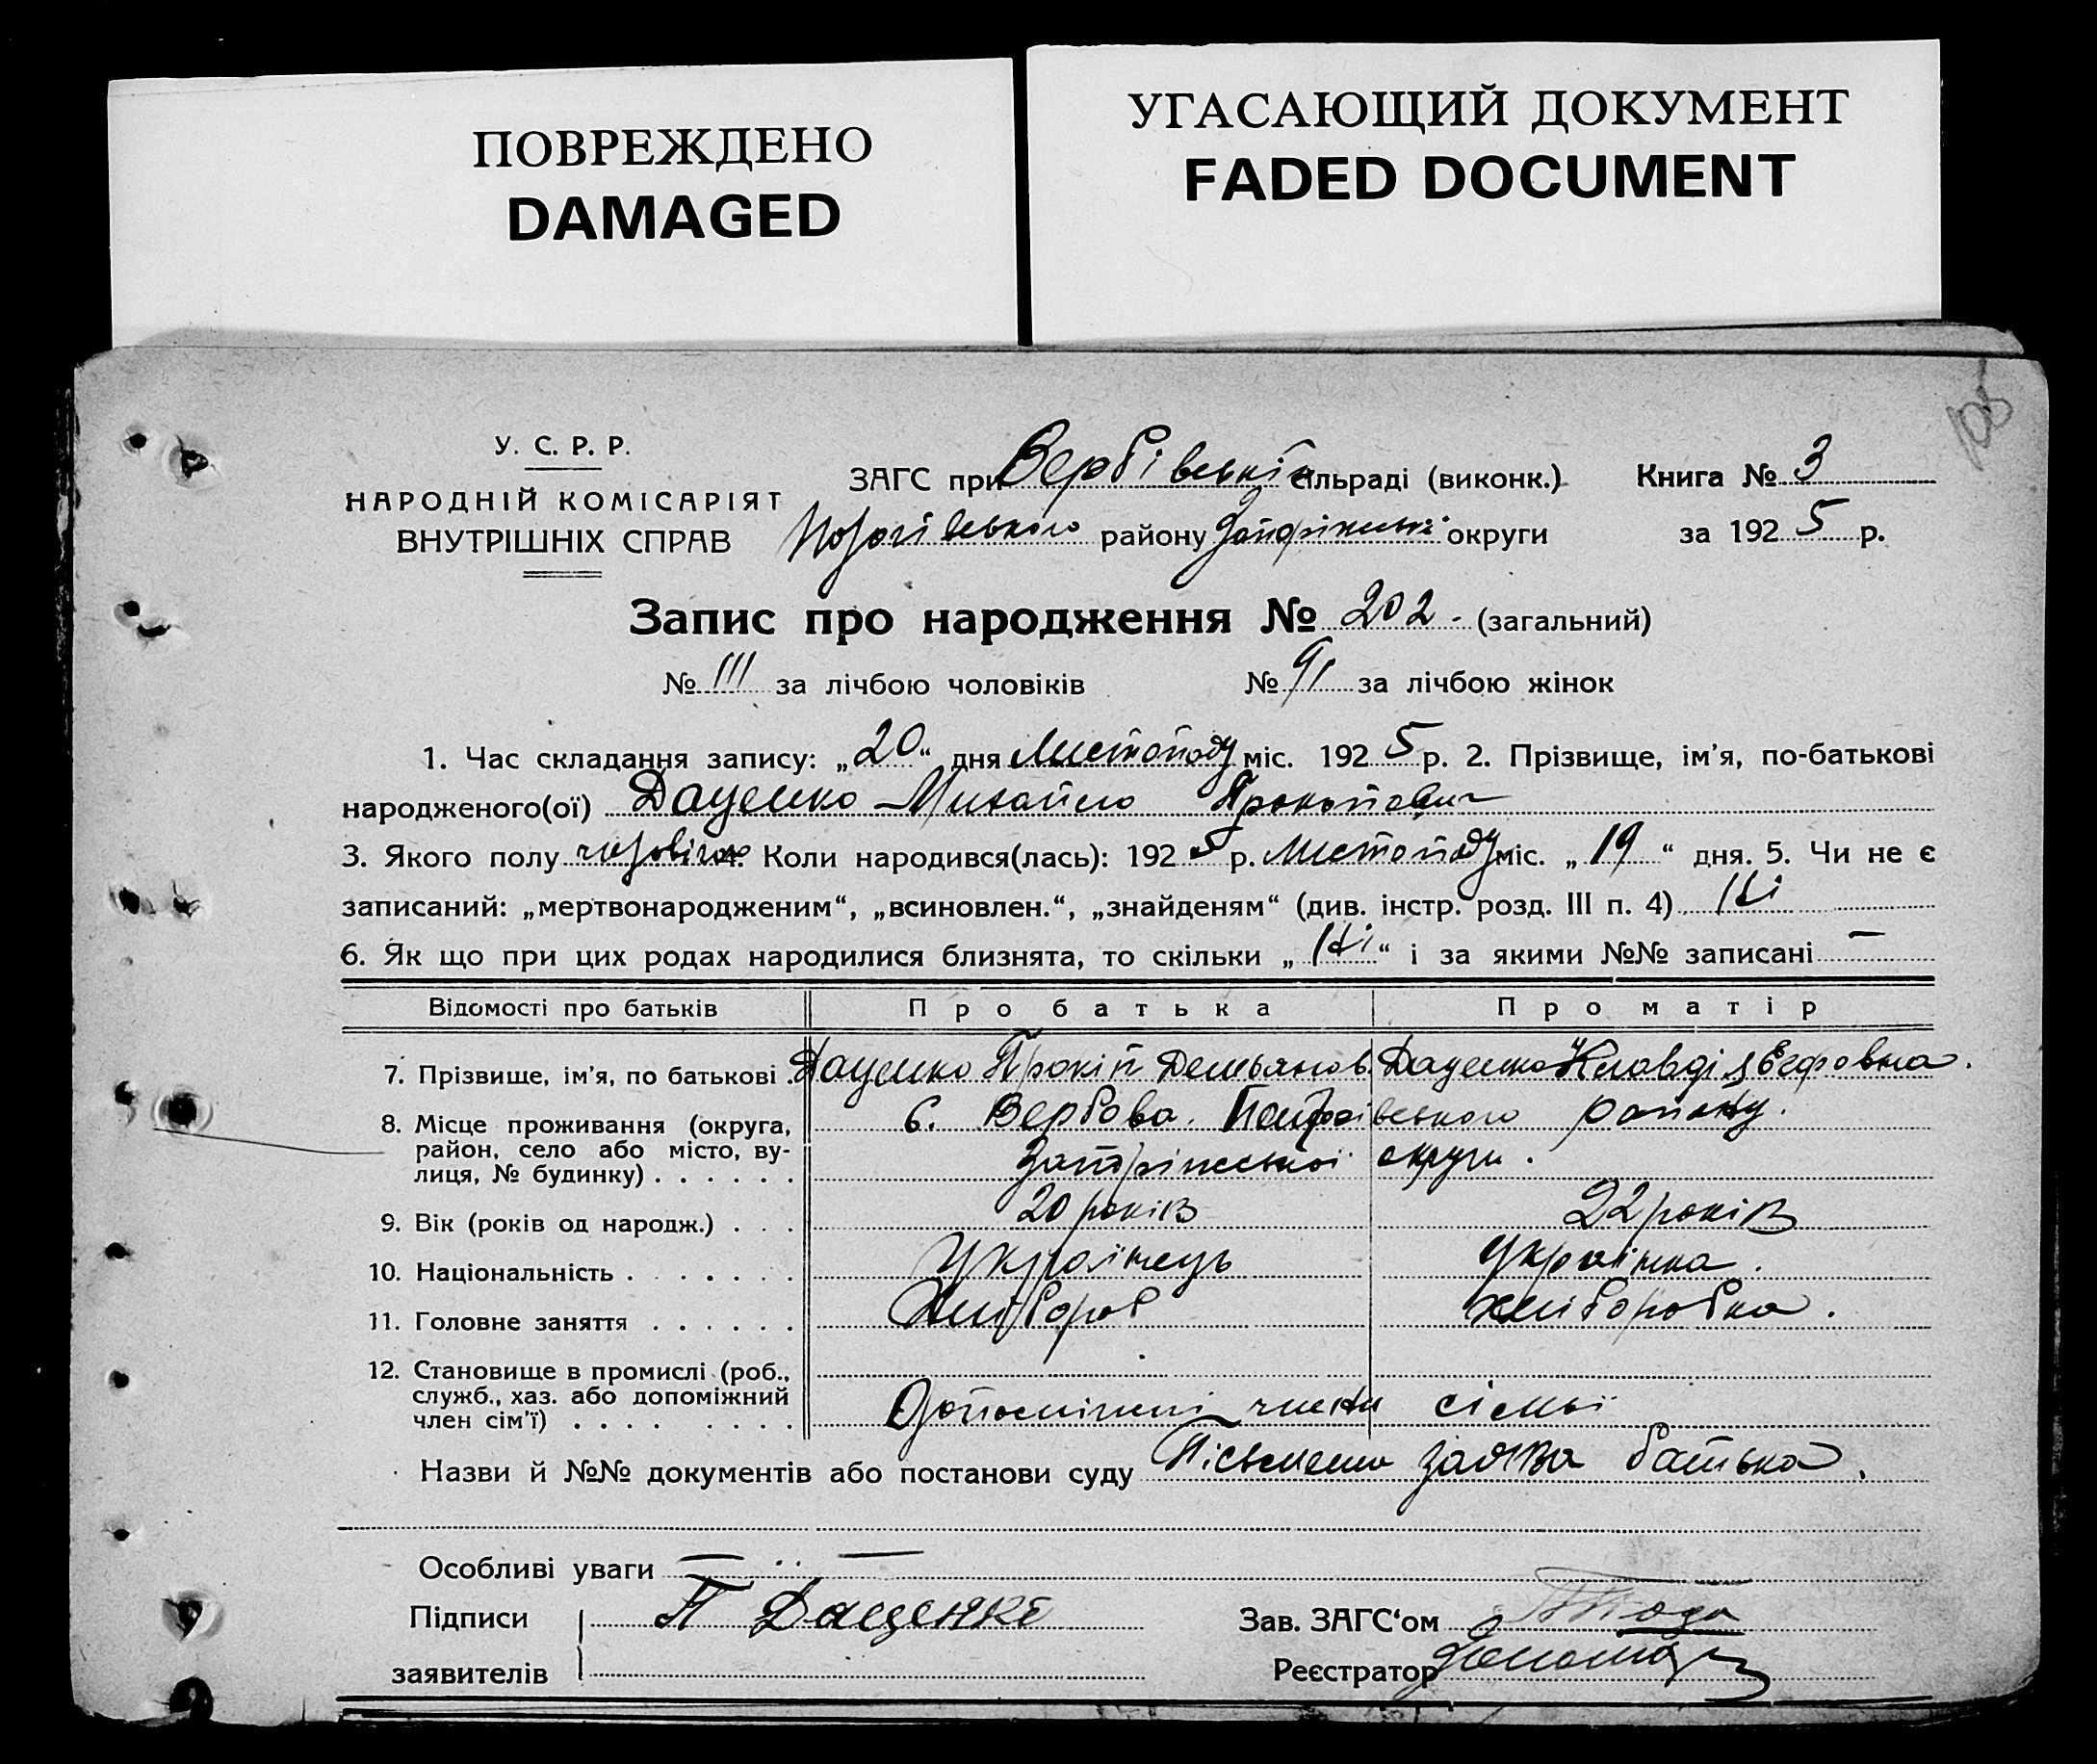 ПОВРЕЖДЕНО
DAMAGED
УГАСАЮЩИЙ ДОКУМЕНТ
FADED DOCUMENT
108
У. С. Р. Р.
НАРОДНІЙ КОМІСАРІЯТ
ВНУТРІШНІХ СПРАВ
ЗАГС при Вербівській сільраді (виконк.) Книга № 3
району Запоріжської округи за 1925 р.
Запис про народження № 202 - (загальний)
№ 111 за лічбою чоловіків № 91 за лічбою жінок
1. Час складання запису: „20“ дня Листопаду міс. 1925 р. 2. Прізвище, ім'я, по-батькові
народженого(ої) Даценко Михайло Прокопович
3. Якого полу 4. Коли народився(лась): 1925 р. Листопаду міс. „19“ дня. 5. Чи не є
записаний: „мертвонародженим“, „всиновлен.“, „знайденям“ (див. інстр. розд. III п. 4) Ні
6. Як що при цих родах народилися близнята, то скільки „Ні“ і за якими №№ записані —
Відомості про батьків Про батька Про матір
7. Прізвище, ім'я, по батькові . Даценко Прокіп Демьянов. Даценко Клавдія
8. Місце проживання (округа, с. Вербова. району.
район, село або місто, ву- Запоріжської округи.
лиця, № будинку) . . . . . .
9. Вік (років од народж.) . . . 20 років 22 років
10. Національність . . . . . . . Українець Українка.
11. Головне заняття . . . . . . Хлібороб хліборобка.
12. Становище в промислі (роб.,
служб., хаз. або допоміжний
член сім'ї) . . . . . . . . Допоміжні члени сімьї
Назви й №№ документів або постанови суду Письмена заява батька.
Особливі уваги — .. —
Підписи П Даценко Зав. ЗАГС'ом
заявителів Реєстратор